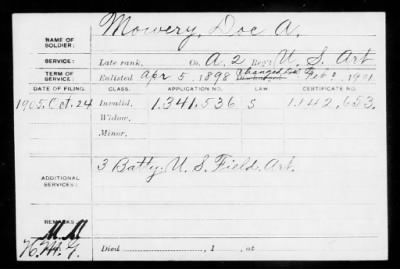 NAME OF SOLDIER: Mowery, Doc A.
SERVICE: Late rank, Co. A, 2 Reg't U. S. Art
TERM OF SERVICE: Enlisted Apr 5, 1898 Discharged Feb. 1901
DATE OF FILING. CLASS. APPLICATION NO. LAW CERTIFICATE NO.
1905, Oct. 24 Invalid, 1.341.536 S 1.142.653.
Widow,
Minor,
ADDITIONAL SERVICES: 3 Batty. U. S. Field. Art.
REMARKS:
Died , 1 , at